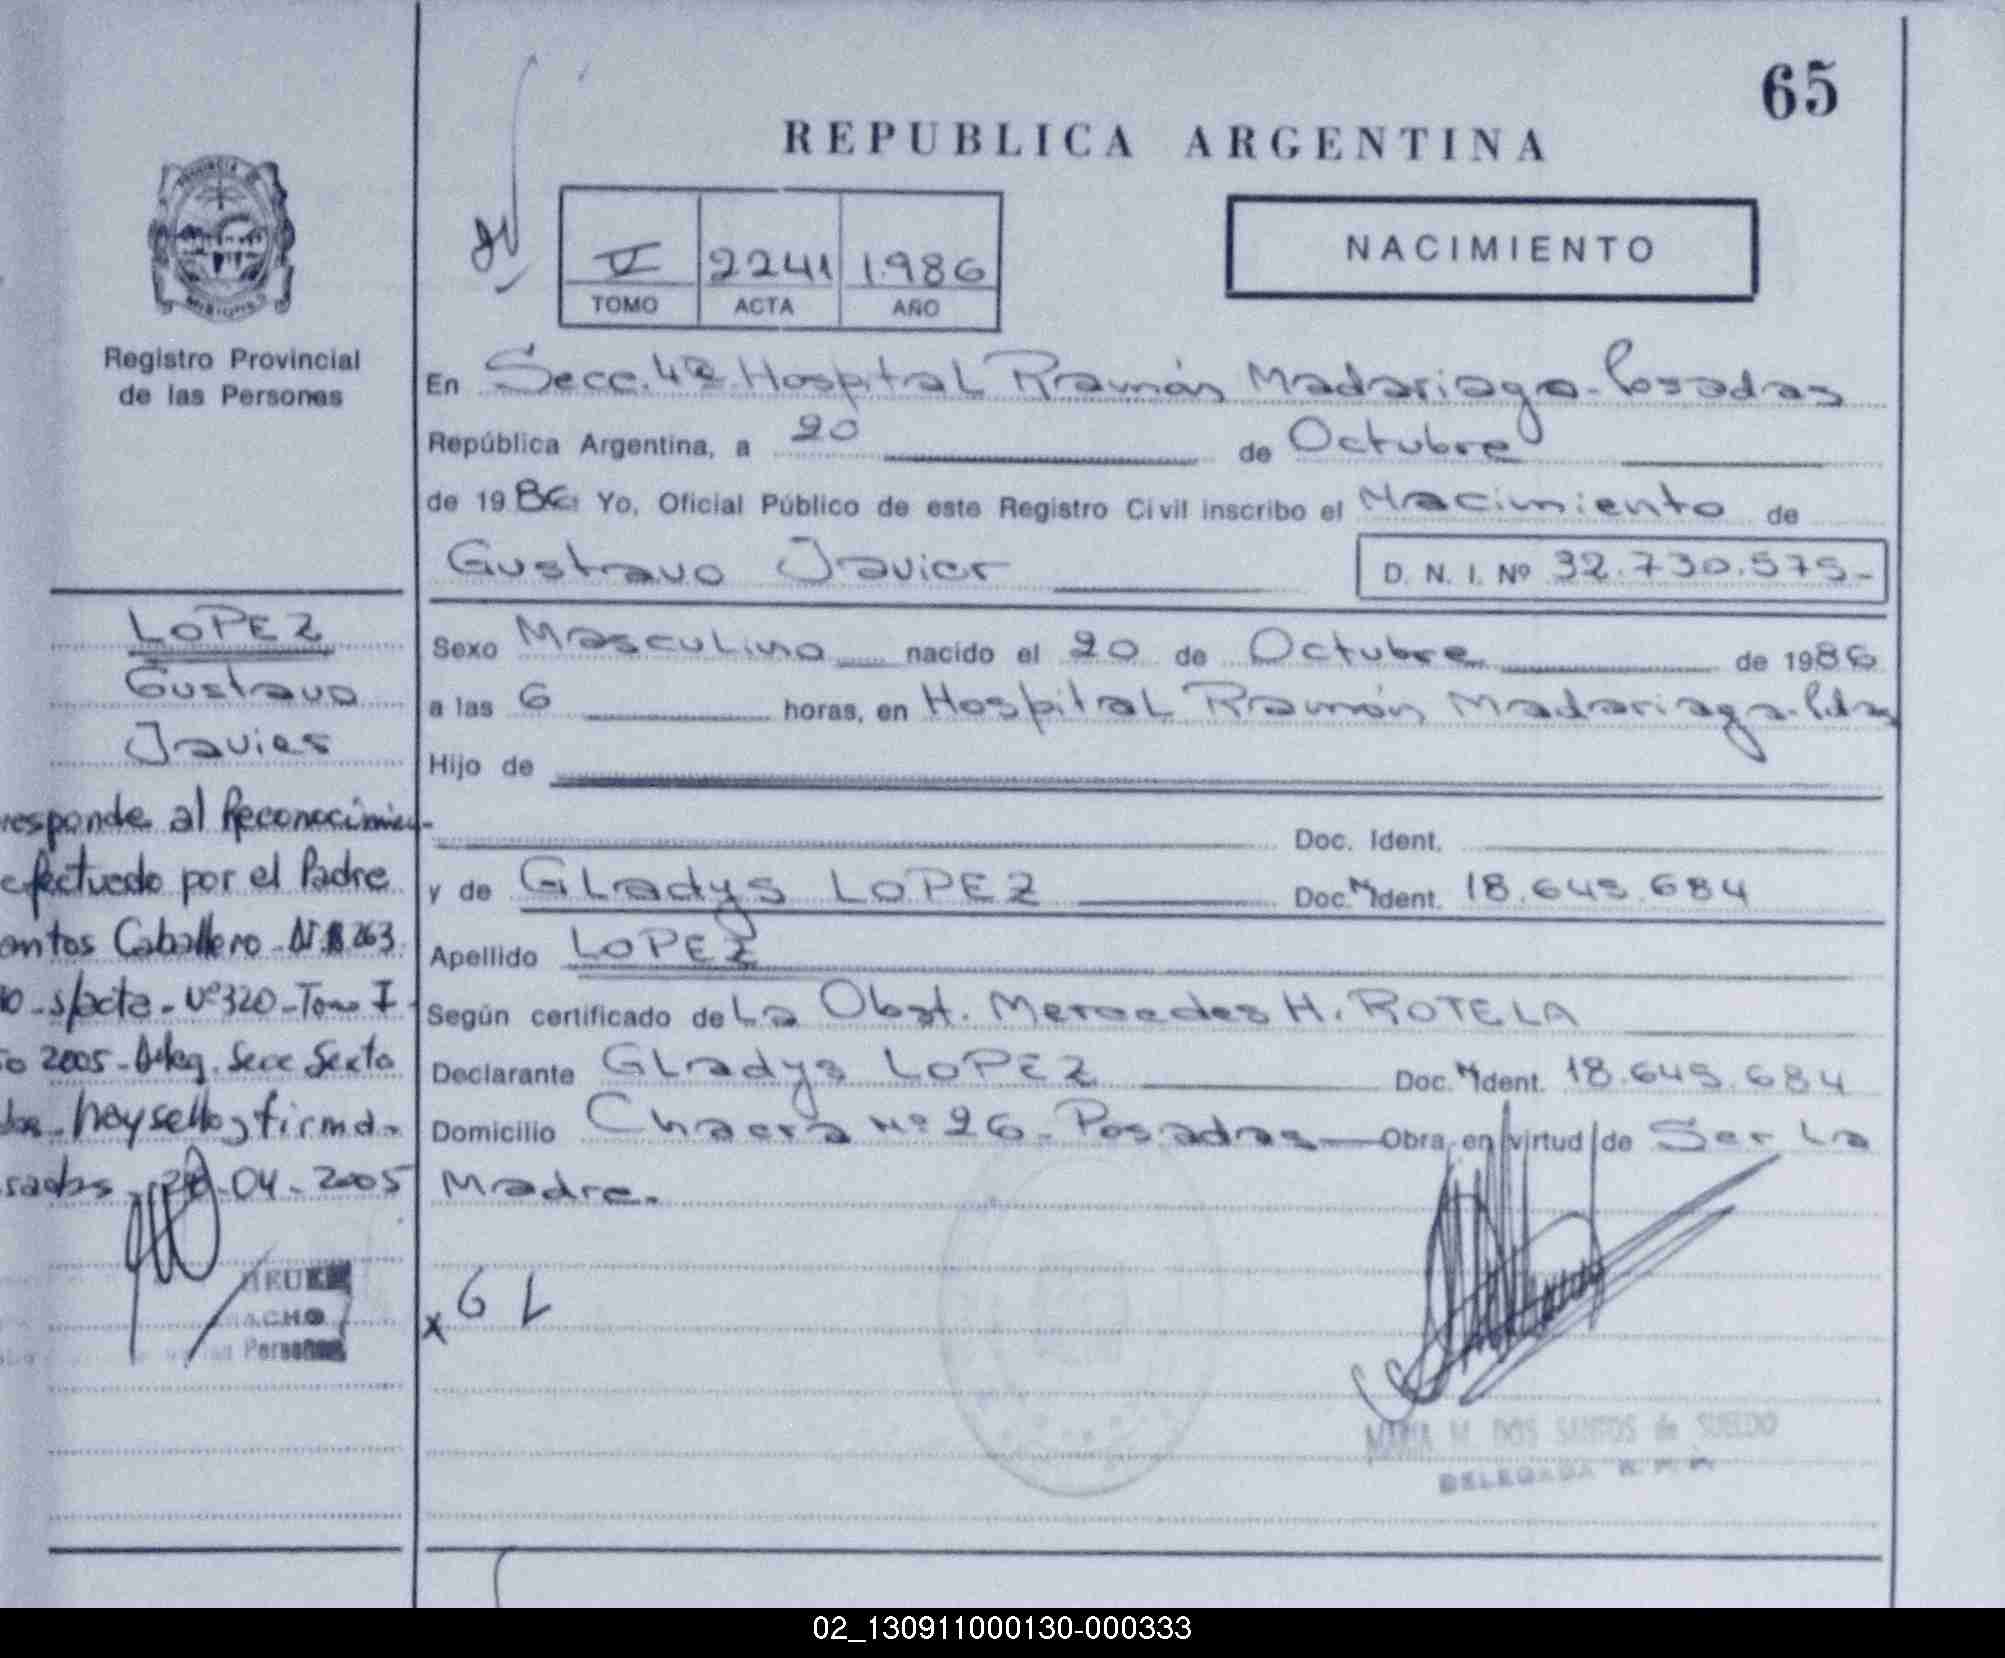 65
REPUBLICA ARGENTINA
NACIMIENTO
V 2241 1.986
TOMO ACTA AÑO
PROVINCIA DE
MISIONES
Registro Provincial
de las Personas
En Secc. 4ª Hospital Ramón Madariaga - Posadas
República Argentina, a 20 de Octubre
de 1986 Yo, Oficial Público de este Registro Civil inscribo el Nacimiento de
Gustavo Javier D. N. I. Nº 32.730.575-
Sexo Masculino nacido el 20 de Octubre de 1986
a las 6 horas, en Hospital Ramón Madariaga - Pdas
Hijo de
Doc. Ident.
y de Gladys LOPEZ Doc. Ident. 18.645.684
Apellido LOPEZ
Según certificado de La Obst. Mercedes H. ROTELA
Declarante Gladys LOPEZ Doc. Ident. 18.645.684
Domicilio Chacra Nº 26 - Posadas Obra en virtud de Ser La
Madre.
x G L
MARIA M. DOS SANTOS de SUEDO
DELEGADA
LOPEZ
Gustavo
Javier
responde al Reconocimien-
efectuado por el Padre
antos Caballero -
s/acta - Nº 320 - Tomo I
o 2005 - Deleg. Secc Sexta
hay sello y firma -
sadas 28-04-2005
ACHO
Personas
02_130911000130-000333